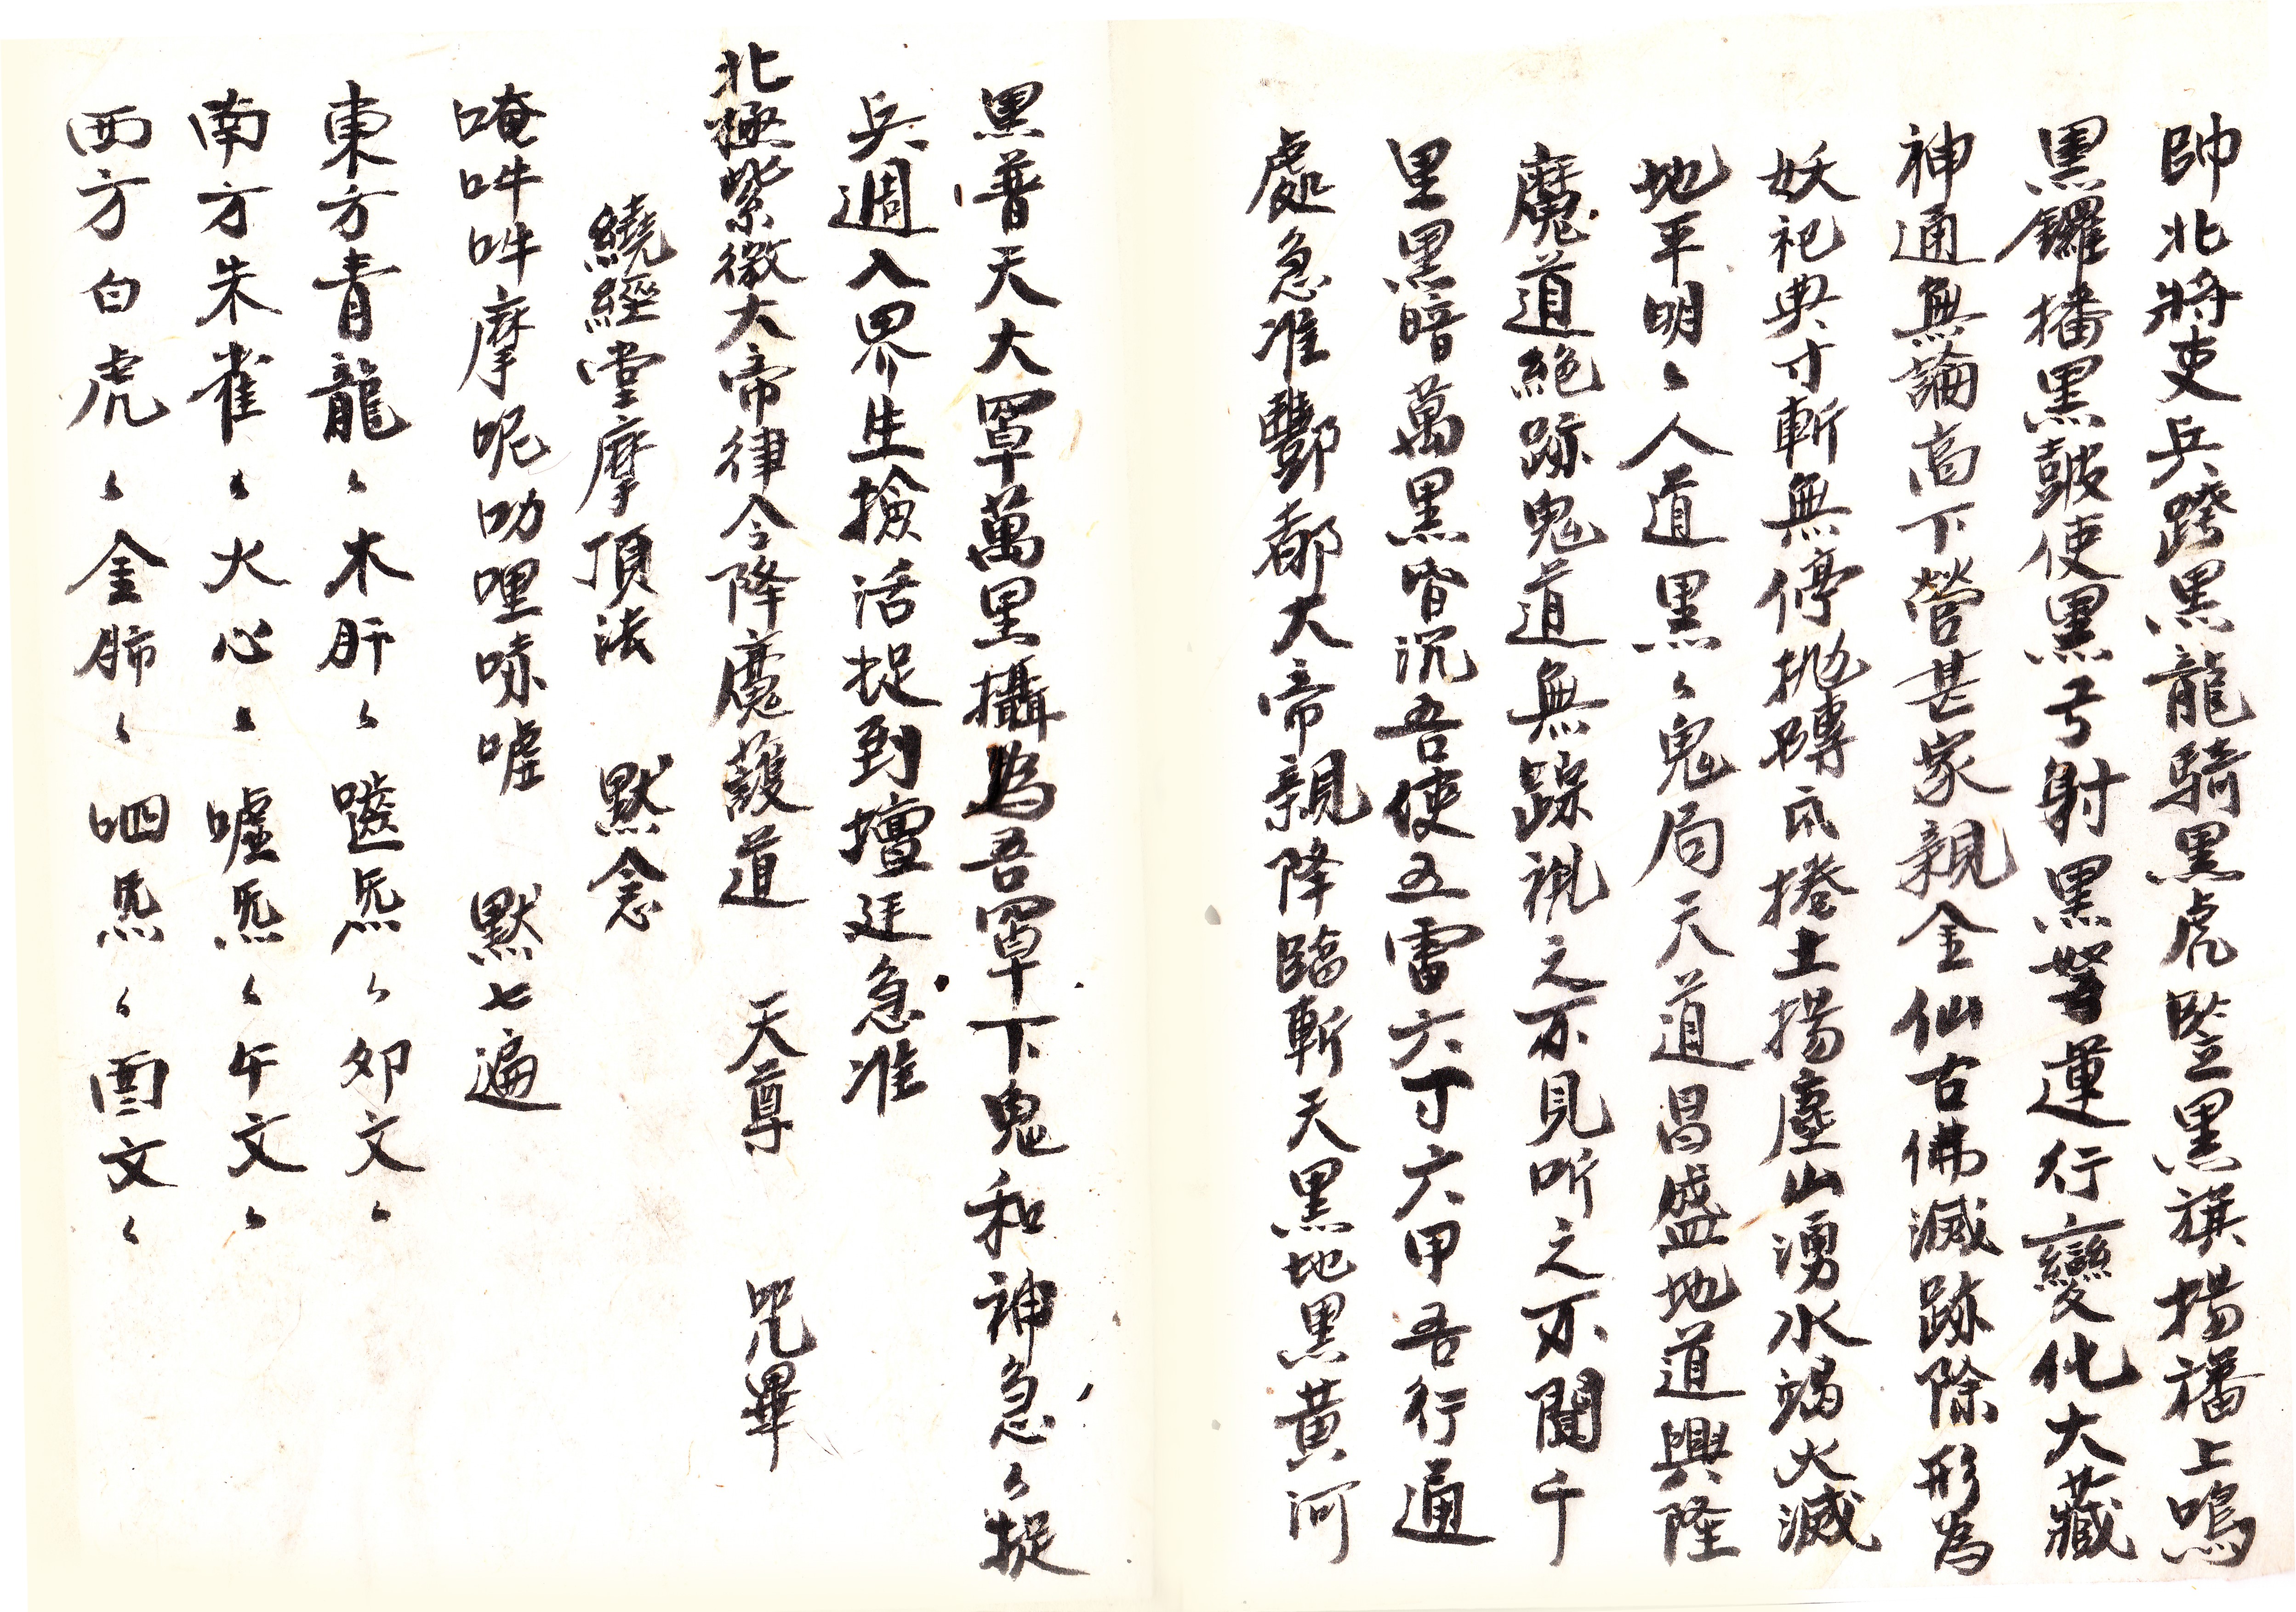 帥北將吏兵跨黑龍騎黑虎竪黑旗揚旛上鳴
黑鑼播黑皷使黑弓射黑弩運行變化大藏
神通無論高下營甚家親金仙古佛滅跡除形為
妖祀典寸斬無停拋磚瓦捲土揚塵山湧水竭火滅
地平明々人道黑々鬼局天道昌盛地道興隆
魔道絕跡鬼道無踪視之不見听之不聞千
里黑暗萬黑皆沉吾使五雷六丁六甲吾行通
處急准酆都大帝親降臨斬天黑地黑黃河
黑普天大罩萬里攝為吾罩下鬼和神急々捉
兵週入界生撿活捉到壇廷急准
北極紫微大帝律令降魔護道 天尊 咒畢
繞經堂摩頂法 默念
唵吽吽摩呢叻哩㖔噓 默七遍
東方青龍々木肝々囓炁々卯文々
南方朱雀々火心々噓炁々午文々
西方白虎々金肺々呬炁々酉文々